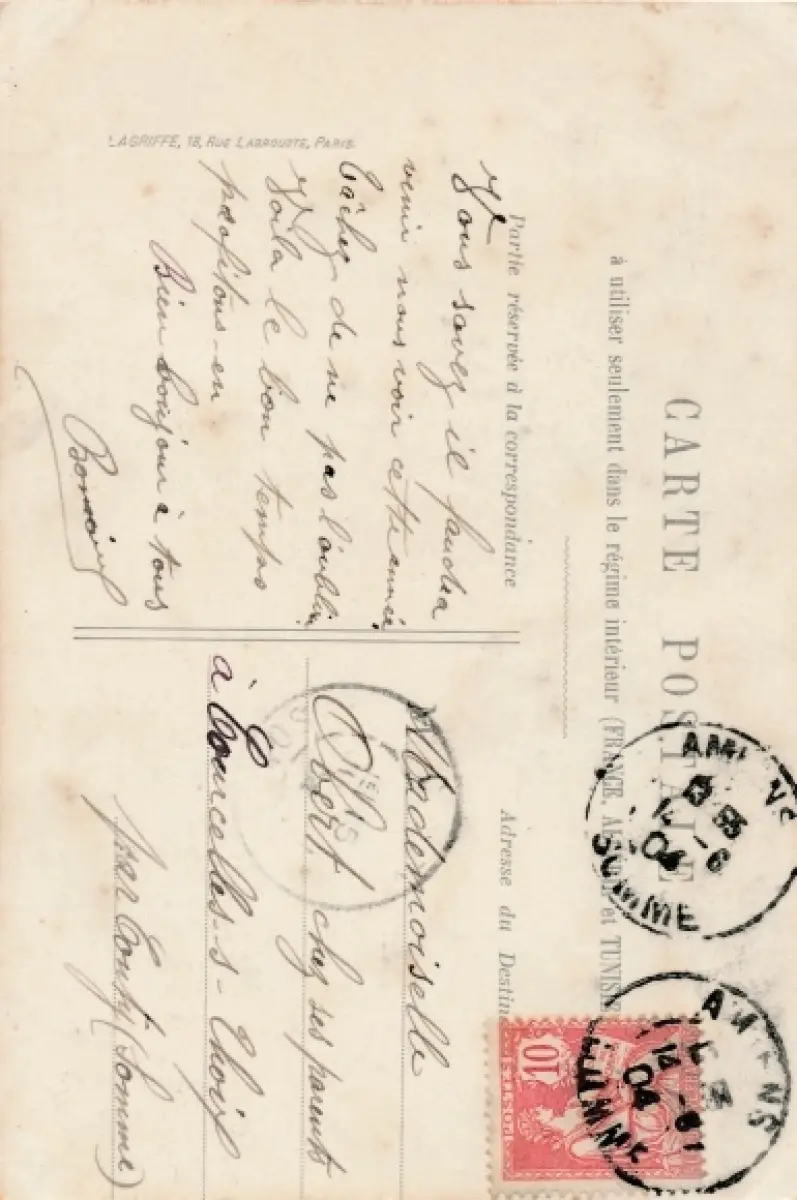 CARTE POSTALE
à utiliser seulement dans le régime intérieur (FRANCE, ALGÉRIE et TUNISIE
Partie réservée à la correspondance
Adresse du Destin
Vous savez il faudra
venir nous voir cette année
tâchez de ne pas l'oublier
Voilà le bon temps
profitons-en
Bien bonjour à tous
Mademoiselle
Obert chez ses parents
à Courcelles-s-Thoix
par Conty (Somme)
LAGRIFFE, 18, RUE LABROUSTE, PARIS
AMIENS
SOMME
04
AMIENS
SOMME
04
10
POSTES